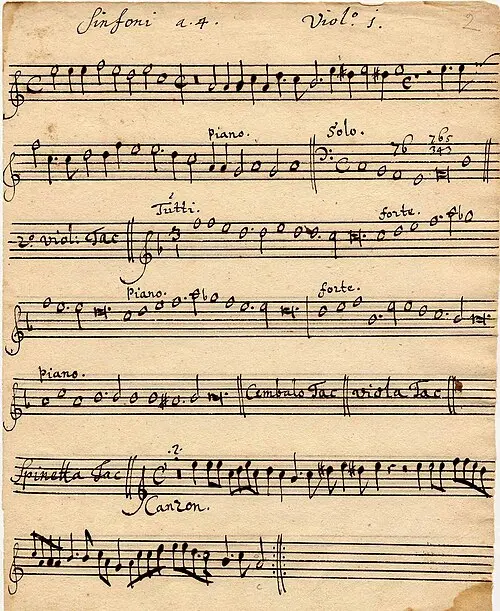 Sinfoni a. 4. Viol.º 1. 2
piano. Solo.
76 765
343
2.º viol: Tac Tutti. 3 forte.
piano. forte.
piano. Cembalo Tac viola Tac
Spinetta Tac .2.
Canzon.